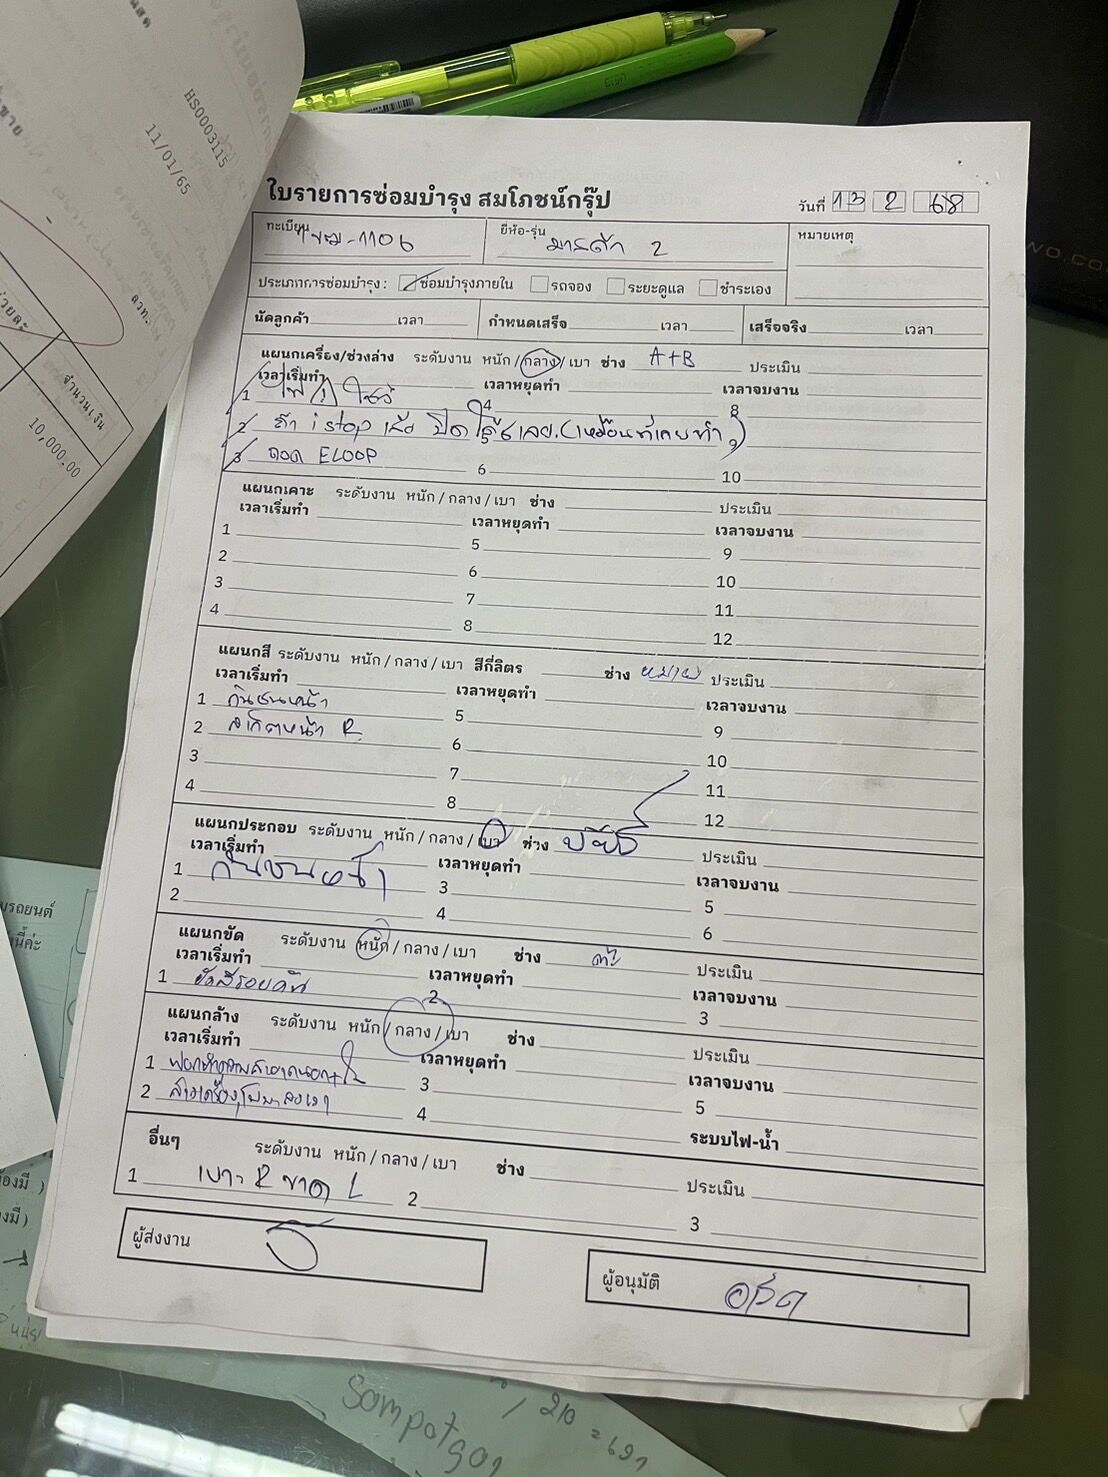 HS0003115
11/01/65
จำนวนเงิน
10,000.00
ใบรายการซ่อมบำรุง สมโภชน์กรุ๊ป
วันที่ 13 2 68
ทะเบียน -1106
ยี่ห้อ-รุ่น มาสด้า 2
หมายเหตุ
ประเภทการซ่อมบำรุง : ซ่อมบำรุงภายใน รถจอง ระยะดูแล ชำระเอง
นัดลูกค้า เวลา กำหนดเสร็จ เวลา เสร็จจริง เวลา
แผนกเครื่อง/ช่วงล่าง ระดับงาน หนัก / กลาง / เบา ช่าง A+B ประเมิน
เวลาเริ่มทำ เวลาหยุดทำ เวลาจบงาน
1 ไฟ โชว์ 4 8
2 ถ้า i stop เสีย ปิดไว้เลย (เหมือนที่เคยทำ) 9
3 ถอด ELOOP 6 10
แผนกเคาะ ระดับงาน หนัก / กลาง / เบา ช่าง ประเมิน
เวลาเริ่มทำ เวลาหยุดทำ เวลาจบงาน
1 5 9
2 6 10
3 7 11
4 8 12
แผนกสี ระดับงาน หนัก / กลาง / เบา สีกี่ลิตร ช่าง ประเมิน
เวลาเริ่มทำ เวลาหยุดทำ เวลาจบงาน
1 กันชนหน้า 5 9
2 สเกิตหน้า R 6 10
3 7 11
4 8 12
แผนกประกอบ ระดับงาน หนัก / กลาง / เบา ช่าง ประเมิน
เวลาเริ่มทำ เวลาหยุดทำ เวลาจบงาน
1 กันชนหน้า 3 5
2 4 6
แผนกขัด ระดับงาน หนัก / กลาง / เบา ช่าง ประเมิน
เวลาเริ่มทำ เวลาหยุดทำ เวลาจบงาน
1 ขัดสีรอบคัน 2 3
แผนกล้าง ระดับงาน หนัก / กลาง / เบา ช่าง ประเมิน
เวลาเริ่มทำ เวลาหยุดทำ เวลาจบงาน
1 ฟอกทำความสะอาดนอก+ใน 3 5
2 ล้างเครื่อง 4 ระบบไฟ-น้ำ
อื่นๆ ระดับงาน หนัก / กลาง / เบา ช่าง ประเมิน
1 เบาะ R ขาด L 2 3
ผู้ส่งงาน
ผู้อนุมัติ
Sompotgor
210 = 691